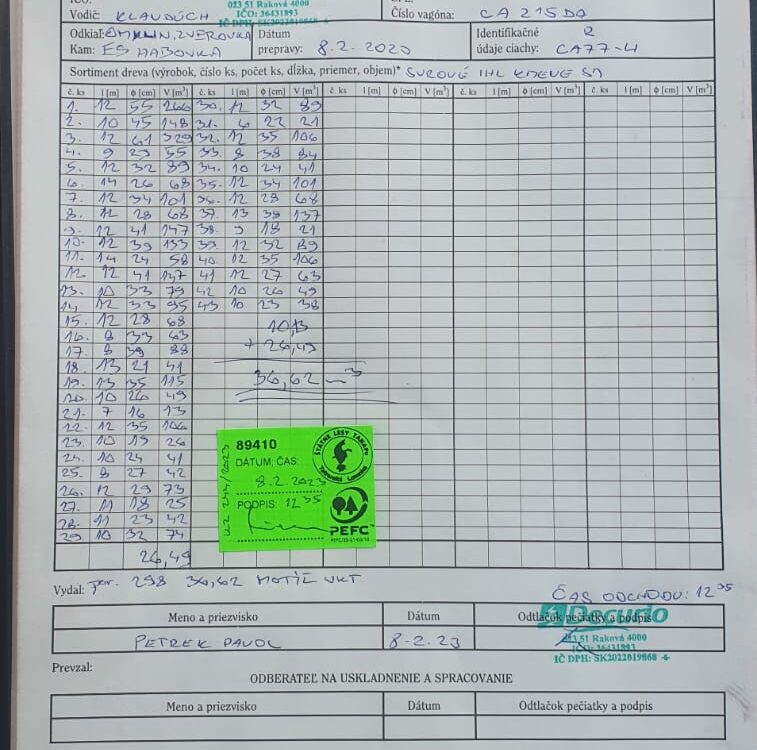 IČO:
023 51 Raková 4000
IČO: 36431893
Vodič: KLAUDÚCH
Číslo vagóna: CA 215 DD
Odkiaľ: OMKLIN, ZVEROVKA
Dátum prepravy: 8.2.2023
Identifikačné údaje ciachy: 2 CA77-4
Kam: ES HABOVKA
Sortiment dreva (výrobok, číslo ks, počet ks, dĺžka, priemer, objem)* SUROVÉ IHL KMENE
č. ks l [m] ϕ [cm] V [m³] č. ks l [m] ϕ [cm] V [m³] č. ks l [m] ϕ [cm] V [m³] č. ks l [m] ϕ [cm] V [m³]
1. 12 55 266 30. 12 32 89
2. 10 45 148 31. 6 22 21
3. 12 61 329 32. 12 35 106
4. 9 29 55 33. 8 38 84
5. 12 32 89 34. 10 24 41
6. 14 26 68 35. 12 34 101
7. 12 34 101 36. 12 28 68
8. 12 28 68 37. 13 39 137
9. 12 41 147 38. 9 18 21
10. 12 39 133 39. 12 32 89
11. 14 24 58 40. 12 35 106
12. 12 41 147 41 12 27 63
13. 10 33 79 42 10 26 49
14. 12 33 95 43 10 23 38
15. 12 28 68
16. 8 33 63
10,13
17. 8 39 88
+ 26,49
18. 13 21 41
19. 13 35 115
36,62 m³
20. 10 26 49
21. 7 16 13
22. 12 35 106
23. 10 19 26
24. 10 24 41
25. 8 27 42
26. 12 29 73
27. 11 18 25
28. 11 23 42
29 10 32 74
26,49
89410
DÁTUM; ČAS:
8.2.2023
PODPIS: 12 35
244/2023
ŠTÁTNE LESY TANAPU
Tatranská Lomnica
PEFC
Vydal: por. 298 36,62 MOTÍZ VKT
ČAS ODCHODU: 12 35
Meno a priezvisko Dátum Odtlačok pečiatky a podpis
Decurio
PETREK PAVOL 8.2.23
023 51 Raková 4000
IČO: 36431893
IČ DPH: SK2022019868 -6-
Prevzal:
ODBERATEĽ NA USKLADNENIE A SPRACOVANIE
Meno a priezvisko Dátum Odtlačok pečiatky a podpis